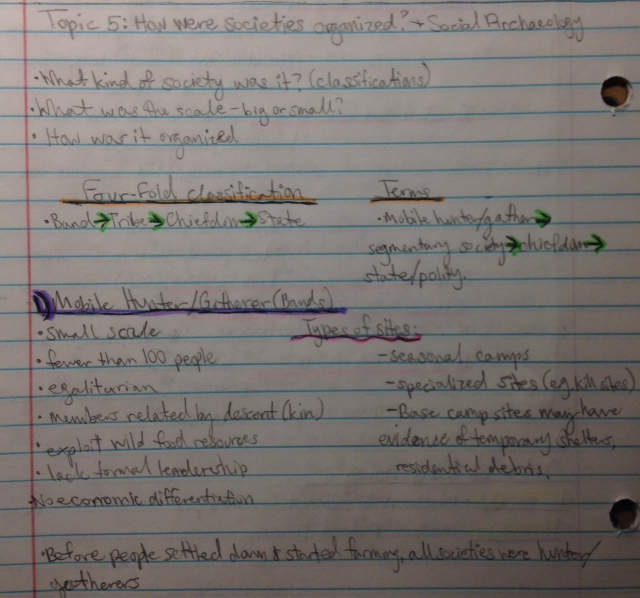 Topic 5: How were societies organized? → Social Archaeology
• What kind of society was it? (classifications)
• What was the scale - big or small?
• How was it organized
Four-Fold classification
• Band → Tribe → Chiefdom → State
Terms
• Mobile hunter/gather →
segmentary society → chiefdom →
state/polity.
1) Mobile Hunter/Gatherer (Bands)
• small scale
• fewer than 100 people
• egalitarian
• members related by descent (kin)
• exploit wild food resources
• lack formal leadership
• No economic differentiation
Types of sites:
- seasonal camps
- specialized sites (eg kill sites)
- Base camp sites may have
evidence of temporary shelters,
residential debris,
• Before people settled down & started farming, all societies were hunter/
gatherers